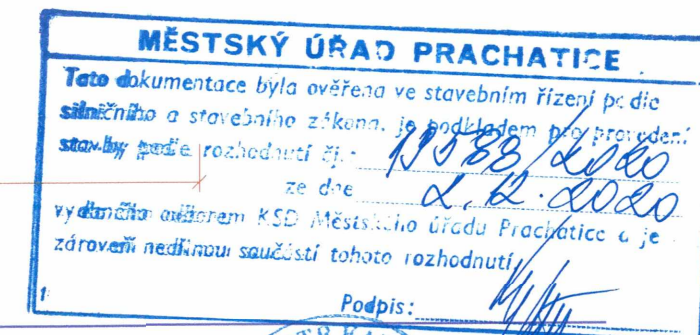 MĚSTSKÝ ÚŘAD PRACHATICE
Tato dokumentace byla ověřena ve stavebním řízení podle
silničního a stavebního zákona, je podkladem pro provedení
stavby podle rozhodnutí čj.: 19588/2020
ze dne 2.12.2020
vydaného odborem KSD Městského úřadu Prachatice a je
zároveň nedílnou součástí tohoto rozhodnutí
Podpis: